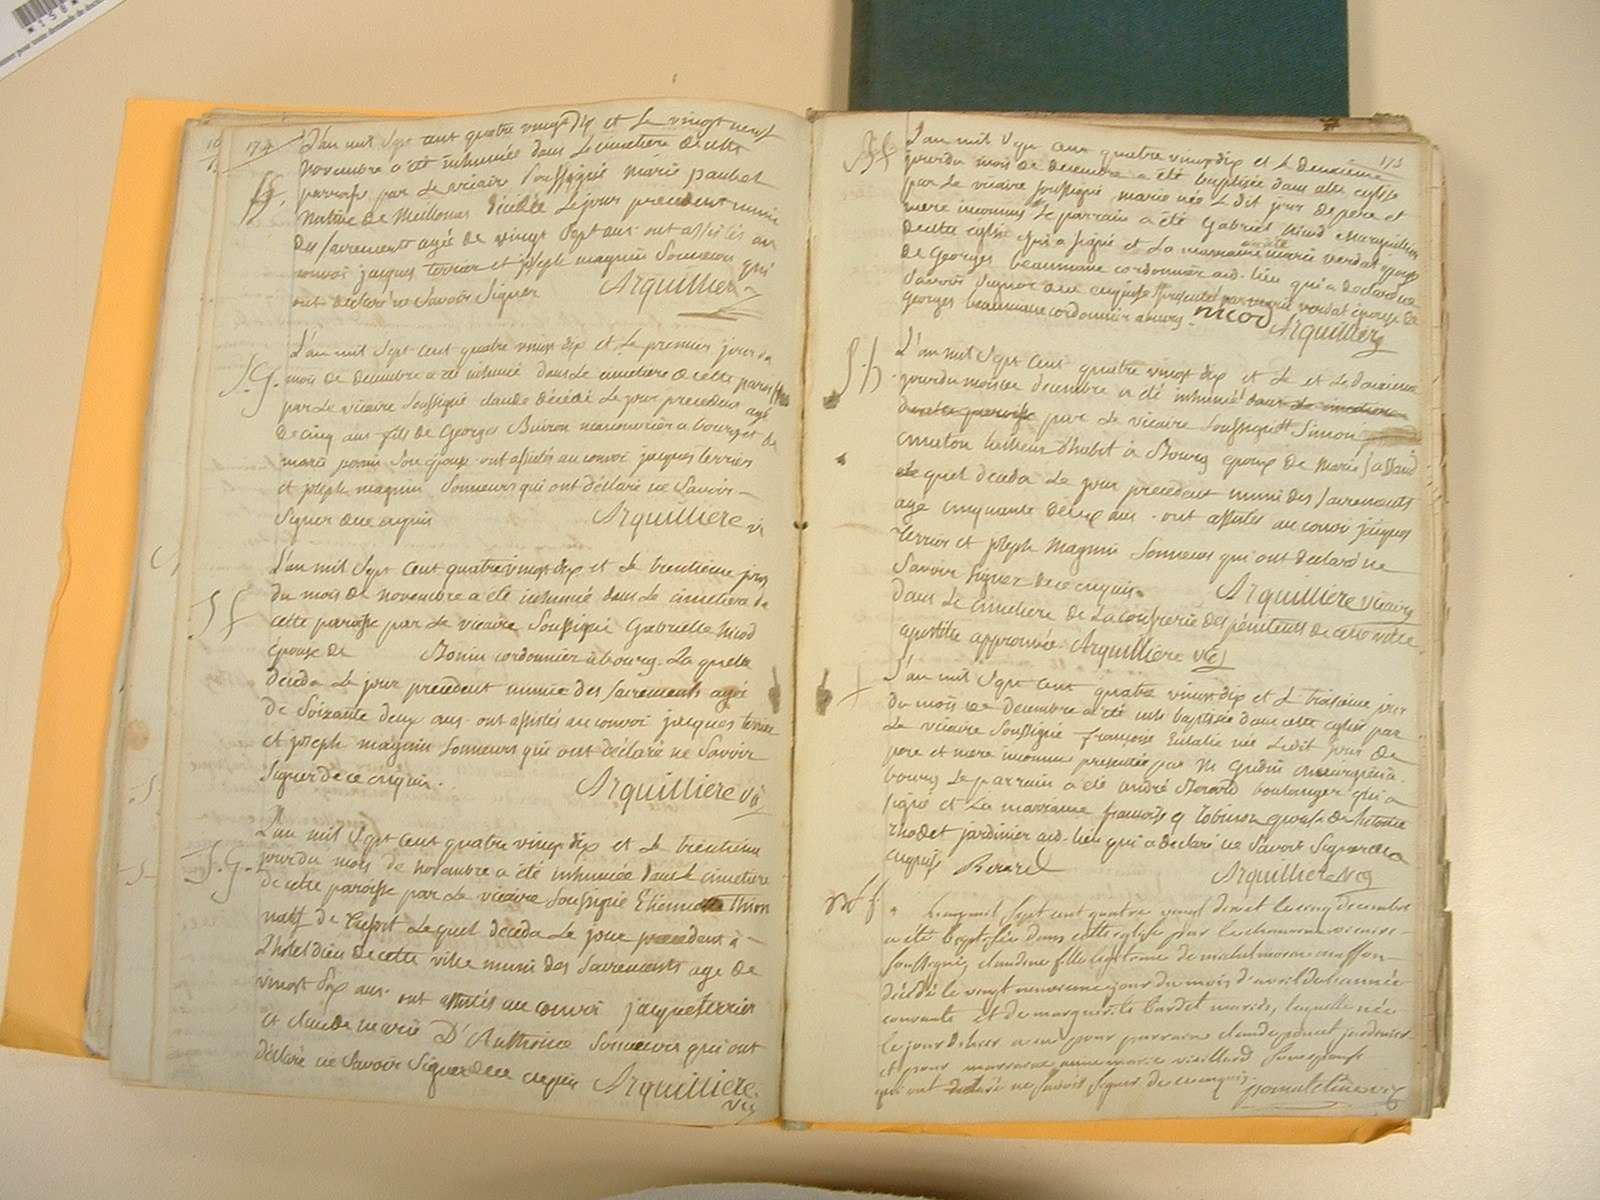 L'an mil Sept cent quatre vingt dix et Le vingt neuf
Novembre a été inhumée dans Le cimetiere de cette
parroisse par Le vicaire Soussigné marie
native de Meillonas décédée Le jour précédent munie
des Sacrements agée de vingt Sept ans. ont assistés au
convoi jacques terrier et joseph magnin Sonneurs qui
ont déclaré ne Savoir Signer Arquilliere
L'an mil Sept cent quatre vingt dix et Le premier jour du
S. G.
mois de decembre a été inhumé dans Le cimetiere de cette paroisse
par Le vicaire Soussigné claude décédé Le jour precedent agé
de cinq ans fils de Georges Buiron manouvrier a bourg et de
marie Son épouse ont assistés au convoi jacques terrier
et joseph magnin Sonneurs qui ont déclaré ne Savoir
Signer de ce enquis Arquilliere vi
L'an mil Sept cent quatre vingt dix et Le trentième jour
du mois de Novembre a été inhumé dans Le cimetiere de
S f
cette paroisse par Le vicaire Soussigné Gabrielle Nicod
épouse de Bonin cordonnier à bourg. La quelle
déceda Le jour precedent munie des Sacrements agée
de Soixante deux ans. ont assistés au convoi jacques terrier
et joseph magnin Sonneurs qui ont déclaré ne Savoir
Signer de ce enquis. Arquilliere vic
L'an mil Sept cent quatre vingt dix et Le trentieme
S. G.
jour du mois de Novembre a été inhumée dans Le cimetiere
de cette paroisse par Le vicaire Soussigné Etienne Thion
natif de Lequel déceda Le jour precedent à
L'hotel dieu de cette ville muni des Sacrements age de
vingt Six ans. ont assistés au convoi jacque terrier
et claude marie D'Authonice Sonneurs qui ont
déclaré ne Savoir Signer de ce enquis Arquilliere
vic
113
L'an mil Sept cent quatre vingt dix et Le deuxieme
jour du mois de decembre a été baptisée dans cette eglise
par Le vicaire Soussigné, marie née Ledit jour de pere et
mere inconnus Le parrain a été Gabriel Nicod Marguillier
de cette eglise qui a Signé et La marraine marie verdat épouse
de Georges beaumane cordonnier aud. Lieu qui a déclaré ne
Savoir Signer de ce enquise presenté par marie verdat épouse de
Georges beaumane cordonnier a bourg. Nicod Arquilliere
S. h
L'an mil Sept cent quatre vingt dix et Le et Le deuxieme
jour du mois de decembre a été inhumé dans Le cimetiere
de cette paroisse par Le vicaire Soussigné Simon
tailleur d'habit à Bourg epoux de Marie
Lequel déceda Le jour precedent muni des Sacrements
age cinquante deux ans. ont assistés au convoi jacques
terrier et joseph Magnin Sonneurs qui ont déclaré ne
Savoir Signer de ce enquis. Arquilliere vicaire
dans Le cimetiere de La confrerie des pénitents de cette ville.
apostille approuvée Arquilliere vic
L'an mil Sept cent quatre vingt dix et Le troisieme jour
du mois de decembre a été baptisée dans cette eglise par
Le vicaire Soussigné françoise Eulalie née Ledit jour de
pere et mere inconnus presentée par M. chirurgien a
bourg Le parrain a été andré Berard boulanger qui a
Signé et La marraine françoise Robinon épouse de Antoine
Rhodet jardinier aud. Lieu qui a déclaré ne Savoir Signer de ce
enquise Berard Arquilliere vic
L'an mil Sept cent quatre vingt dix et le cinq decembre
a été baptisée dans cette eglise par le chanoine vicaire
Soussigné, claudine fille légitime de masson
décédé le vingt neuvieme jour du mois d'avril de l'année
courante et de marguerite Bardet mariés, laquelle née
le jour d'hier a eu pour parrain claude jardinier
et pour marraine anne marie vieillard Son epouse
qui ont déclaré ne Savoir Signer de ce enquis.